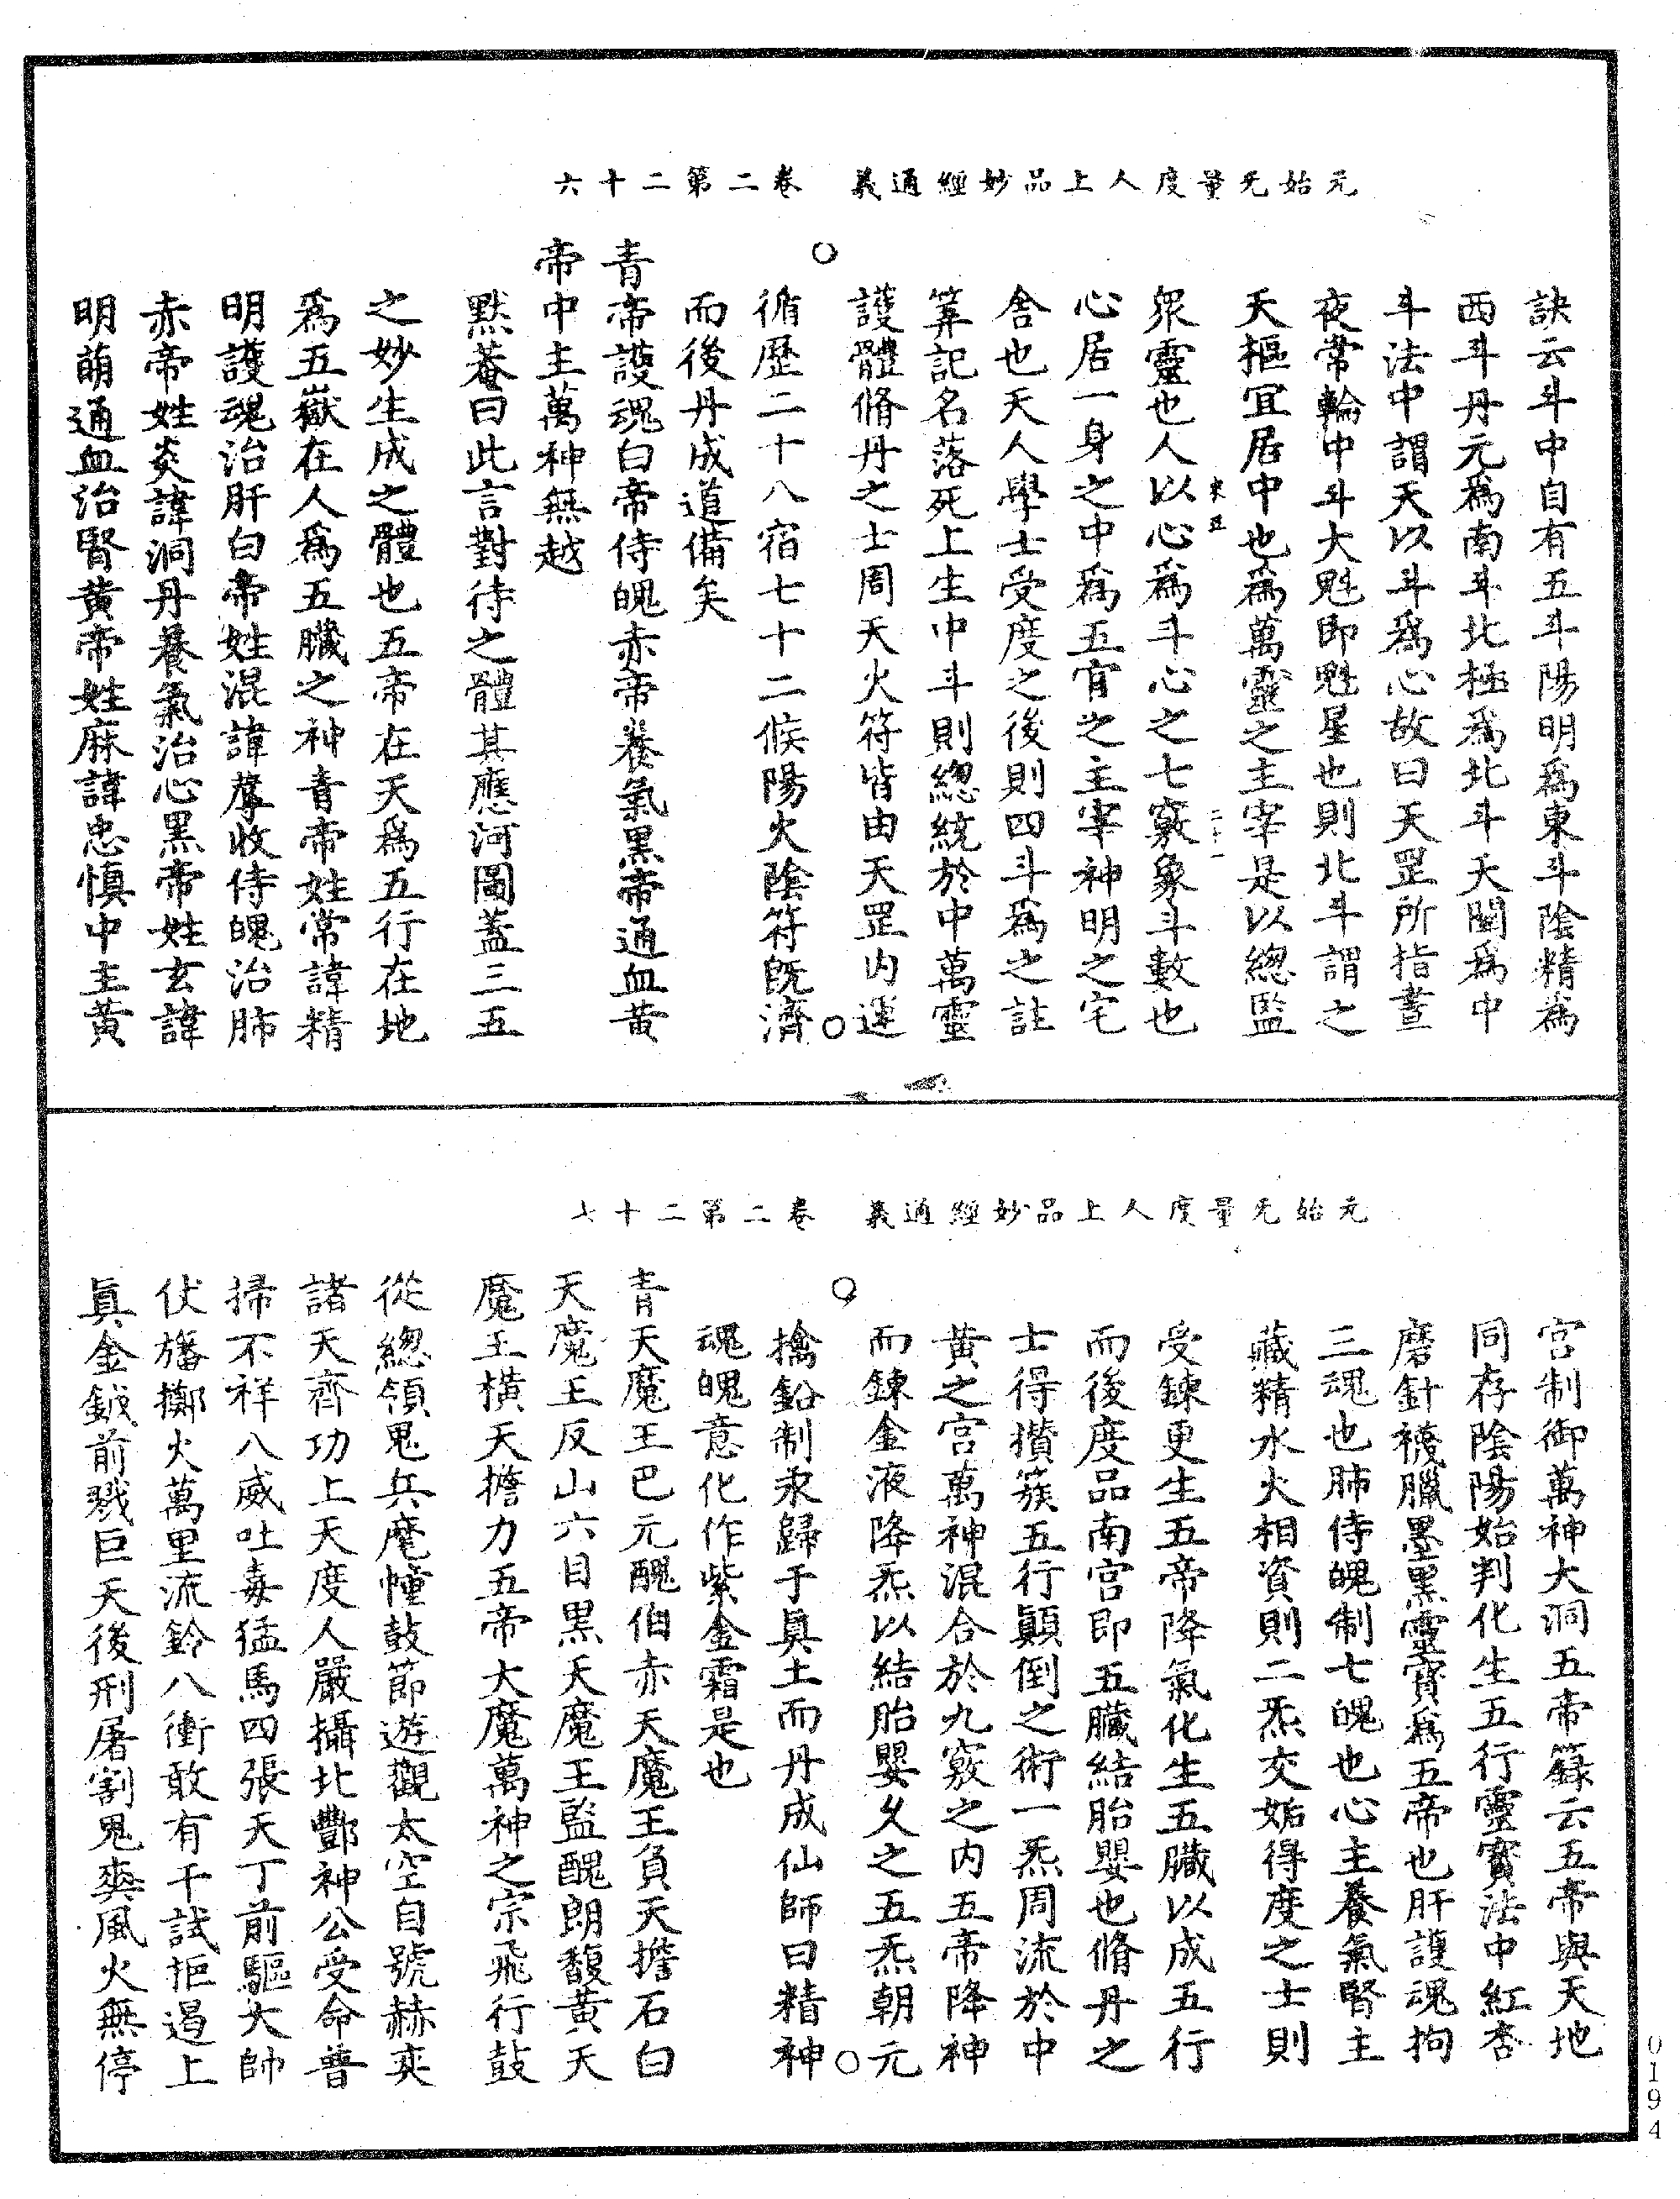 元始无量度人上品妙經通義　卷二第二十六
訣云斗中自有五斗陽明爲東斗陰精爲
西斗丹元爲南斗北極爲北斗天關爲中
斗法中謂天以斗爲心故曰天罡所指晝
夜常輪中斗大魁即魁星也則北斗謂之
天樞冝居中也爲萬靈之主宰是以總監
衆靈也人以心爲斗心之七竅象斗數也
心居一身之中爲五官之主宰神明之宅
舍也天人學士受度之後則四斗爲之註
筭記名落死上生中斗則總統於中萬靈
護體脩丹之士周天火符皆由天罡内運
循歷二十八宿七十二候陽火陰符旣濟
而後丹成道備矣
青帝護魂白帝侍魄赤帝養氣黑帝通血黃
帝中主萬神無越
黙菴曰此言對待之體其應河圖蓋三五
之妙生成之體也五帝在天爲五行在地
爲五嶽在人爲五臟之神青帝姓常諱精
明護魂治肝白帝姓混諱蓐收侍魄治肺
赤帝姓炎諱洞丹養氣治心黑帝姓玄諱
明萌通血治腎黃帝姓麻諱忠慎中主黃
元始无量度人上品妙經通義　卷二第二十七
宮制御萬神大洞五帝籙云五帝與天地
同存陰陽始判化生五行靈寳法中紅杏
磨針襪臘墨黑靈寳爲五帝也肝護魂拘
三魂也肺侍魄制七魄也心主養氣腎主
藏精水火相資則二炁交姤得度之士則
受鍊更生五帝降氣化生五臟以成五行
而後度品南宮即五臟結胎嬰也脩丹之
士得攢簇五行顚倒之術一炁周流於中
黃之宮萬神混合於九竅之内五帝降神
而鍊金液降炁以結胎嬰久之五炁朝元
擒鉛制汞歸于眞土而丹成仙師曰精神
魂魄意化作紫金霜是也
青天魔王巴元醜伯赤天魔王負天擔石白
天魔王反山六目黑天魔王監醜朗馥黃天
魔王橫天擔力五帝大魔萬神之宗飛行鼓
從總領鬼兵麾幢鼓節遊觀太空自號赫奕
諸天齊功上天度人嚴攝北酆神公受命普
掃不祥八威吐毒猛馬四張天丁前驅大帥
仗旛擲火萬里流鈴八衝敢有干試拒遏上
眞金鉞前戮巨天後刑屠割鬼爽風火無停
0194